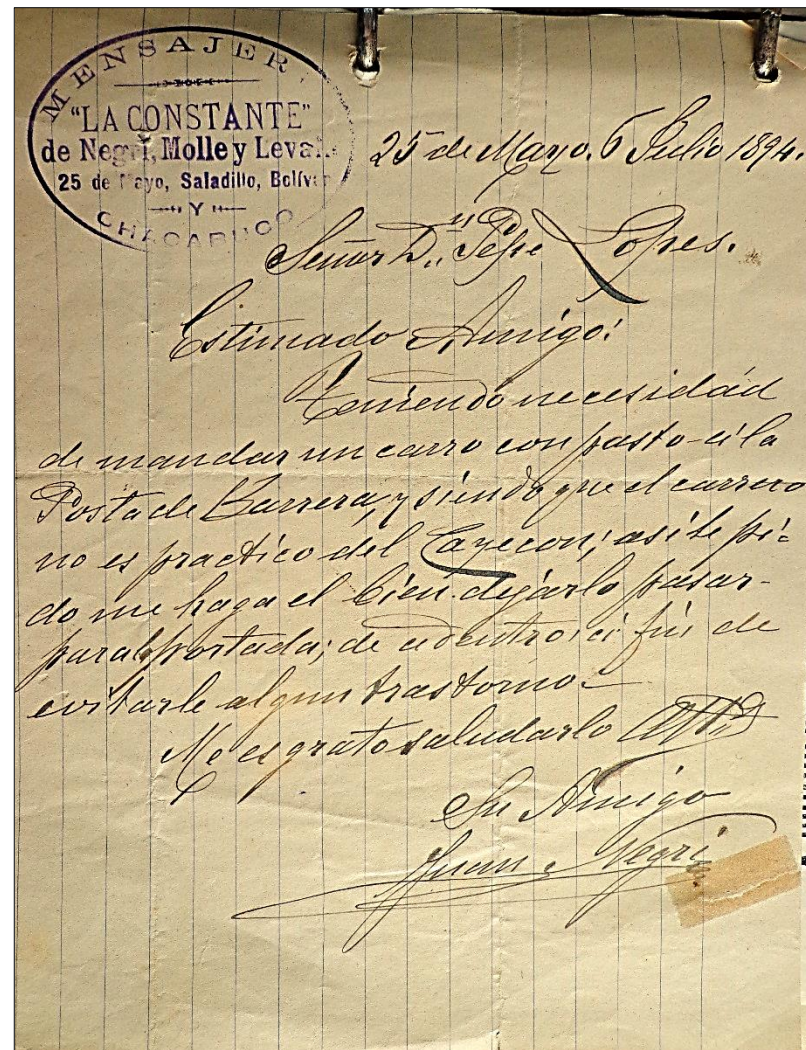 MENSAJER
"LA CONSTANTE"
de Negri, Molle y Leva
25 de Mayo, Saladillo, Bolívar
Y
CHACABUCO
25 de Mayo. 6 Julio 1894.
Señor Dn. Pepe Lopes.
Estimado Amigo:
Teniendo necesidád
de mandar un carro con pasto á la
Posta de Barrera, y siendo que el carrero
no es practico del; asi te pi-
do me haga el bien dejárlo pasar
portada; de adentro; á fin de
evitarle algun trastorno.
Me es grato saludarlo Atto
Su Amigo
Juan Negri